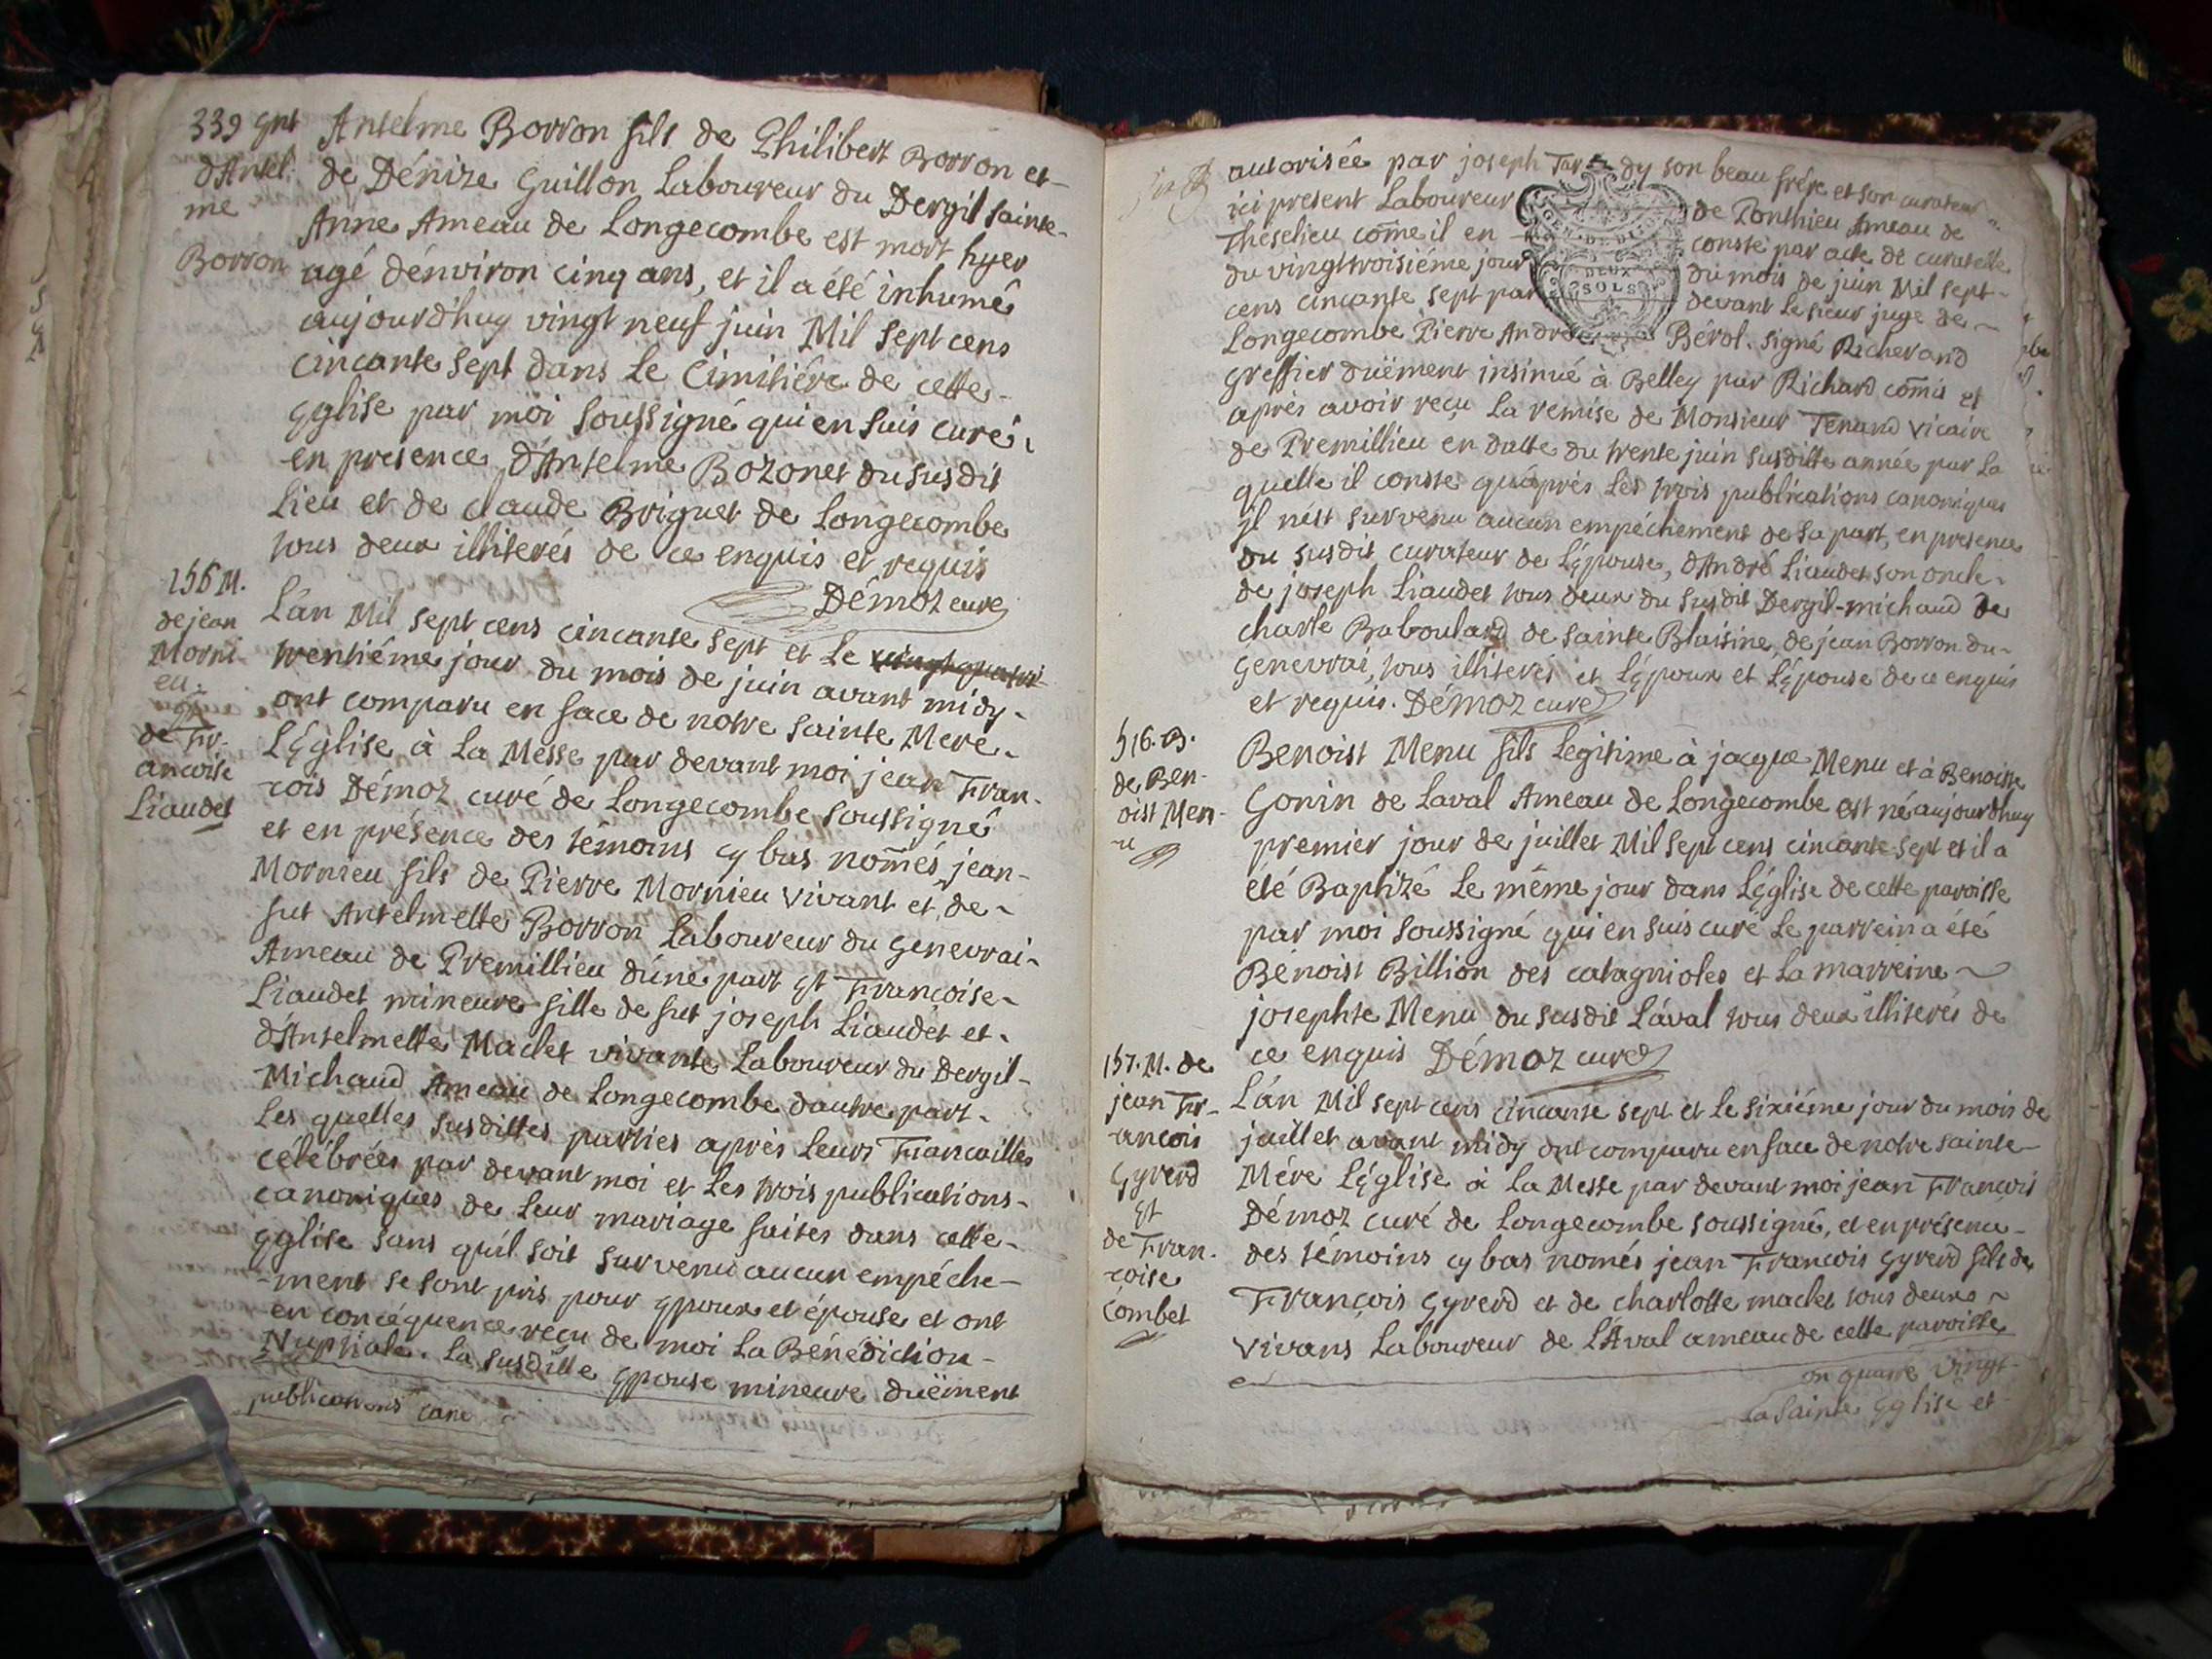 339 Ent
d'Antel.
me
Borron
Antelme Borron fils de Philibert Borron et
de Dénize Guillon Laboureur du Dergil sainte-
Anne Ameau de Longecombe est mort hyer
agé dénviron cinq ans, et il a été inhumé
aujourdhuy vingt neuf juin Mil sept cens
cincante sept dans Le Cimitiére de cette
Eglise par moi soussigné qui en suis curé
en presence d'Antelme Bozonet du susdit
Lieu et de claude Briguet de Longecombe
tous deux illiterés de ce enquis et requis
Démoz curé
156 M.
de jean
Morni-
eu.
Et
de Fr-
ancoise
Liaudet
L'an Mil sept cens cincante sept et Le
trentiéme jour du mois de juin avant midy
ont comparu en face de notre sainte Mere
L'Eglise à La Messe par devant moi jean Fran-
cois Démoz curé de Longecombe soussigné
et en présence des témoins cy bas nom̄és, jean
Mornieu fils de Pierre Mornieu vivant et de
fut Antelmette Borron Laboureur du Genevrai
Ameau de Premillieu dúne part Et Françoise
Liaudet mineure fille de fut joseph Liaudet et
d'Antelmette Maclet vivante Laboureur du Dergil-
Michaud Ameau de Longecombe dautre part
Les quelles susdittes parties aprés Leurs Fiancailles
célébrées par devant moi et Les trois publications
canoniques de Leur mariage faites dans cette
Eglise sans qu'il soit survenu aucun empéche-
-ment se sont pris pour Epoux et épouse et ont
en concéquence reçu de moi La Bénédiction
Nuptiale. La susditte Epouse mineure duëment
publications cano
autorisée par joseph Tardy son beau frére et son curateur
ici present Laboureur de Ponthieu Ameau de
Théselieu com̄e il en conste par acte de curatelle
du vingt troisiéme jour du mois de juin Mil sept
cens cincante sept par devant Le sieur juge de
Longecombe Pierre André Bérol. signé Richerand
DEUX
SOLS
greffier duëment insinué à Belley par Richard com̄is et
aprés avoir reçu La remise de Monsieur Tenand vicaire
de Premillieu en datte du trente juin susditte année par La
quelle il conste qu'aprés Les trois publications canoniques
jl nést survenu aucun empéchement de sa part, en presence
du susdit curateur de L'Epouse, d'André Liaudet son oncle
de joseph Liaudet tous deux du susdit Dergil-michaud de
charle Baboulard de sainte Blaisine, de jean Borron du
Genevrai, tous illiterés et L'Epoux et L'Epouse de ce enquis
et requis. Démoz curé
516. B.
de Ben-
oist Men-
u
Benoist Menu fils Legitime à jacque Menu et à Benoitte
Gonin de Laval Ameau de Longecombe est né aujourdhuy
premier jour de juillet Mil sept cens cincante sept et il a
été Baptizé Le même jour dans L'Eglise de cette paroisse
par moi soussigné qui en suis curé Le parrein a été
Benoist Billion des catagnioles et La marreine
josephte Menu du susdit Lával tous deux illiterés de
ce enquis Démoz curé
157. M. de
jean Fr-
ancois
Gyrerd
Et
de Fran-
coise
Combet
L'án Mil sept cens cincante sept et Le sixiéme jour du mois de
juillet avant midy ont comparu en face de notre sainte
Mére L'Eglise à La Messe par devant moi jean Francois
Démoz curé de Longecombe soussigné, et en présence
des témoins cy bas només jean Francois Gyrerd fils de
François Gyrerd et de charlotte maclet tous deux
vivans Laboureur de L'Aval ameau de cette paroisse
on quatre vingt
La Sainte Eglise et